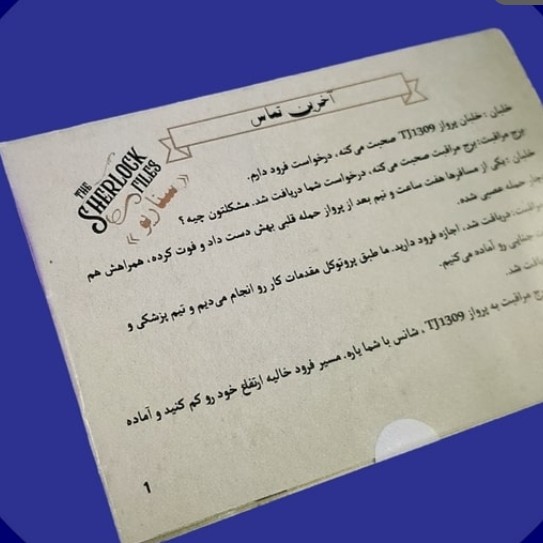 آخرین تماس
THE
SHERLOCK
FILES
«سناریو»
خلبان: خلبان پرواز TJ1309 صحبت می‌کنه، درخواست فرود دارم.
برج مراقبت: برج مراقبت صحبت می‌کنه، درخواست شما دریافت شد. مشکلتون چیه؟
خلبان: یکی از مسافرها هفت ساعت و نیم بعد از پرواز حمله قلبی بهش دست داد و فوت کرده، همراهش هم
حمله عصبی شده.
دریافت شد، اجازه فرود دارید. ما طبق پروتوکل مقدمات کار رو انجام می‌دیم و تیم پزشکی و
جنایی رو آماده می‌کنیم.
شد.
مراقبت به پرواز TJ1309، شانس با شما یاره. مسیر فرود خالیه ارتفاع خود رو کم کنید و آماده
1